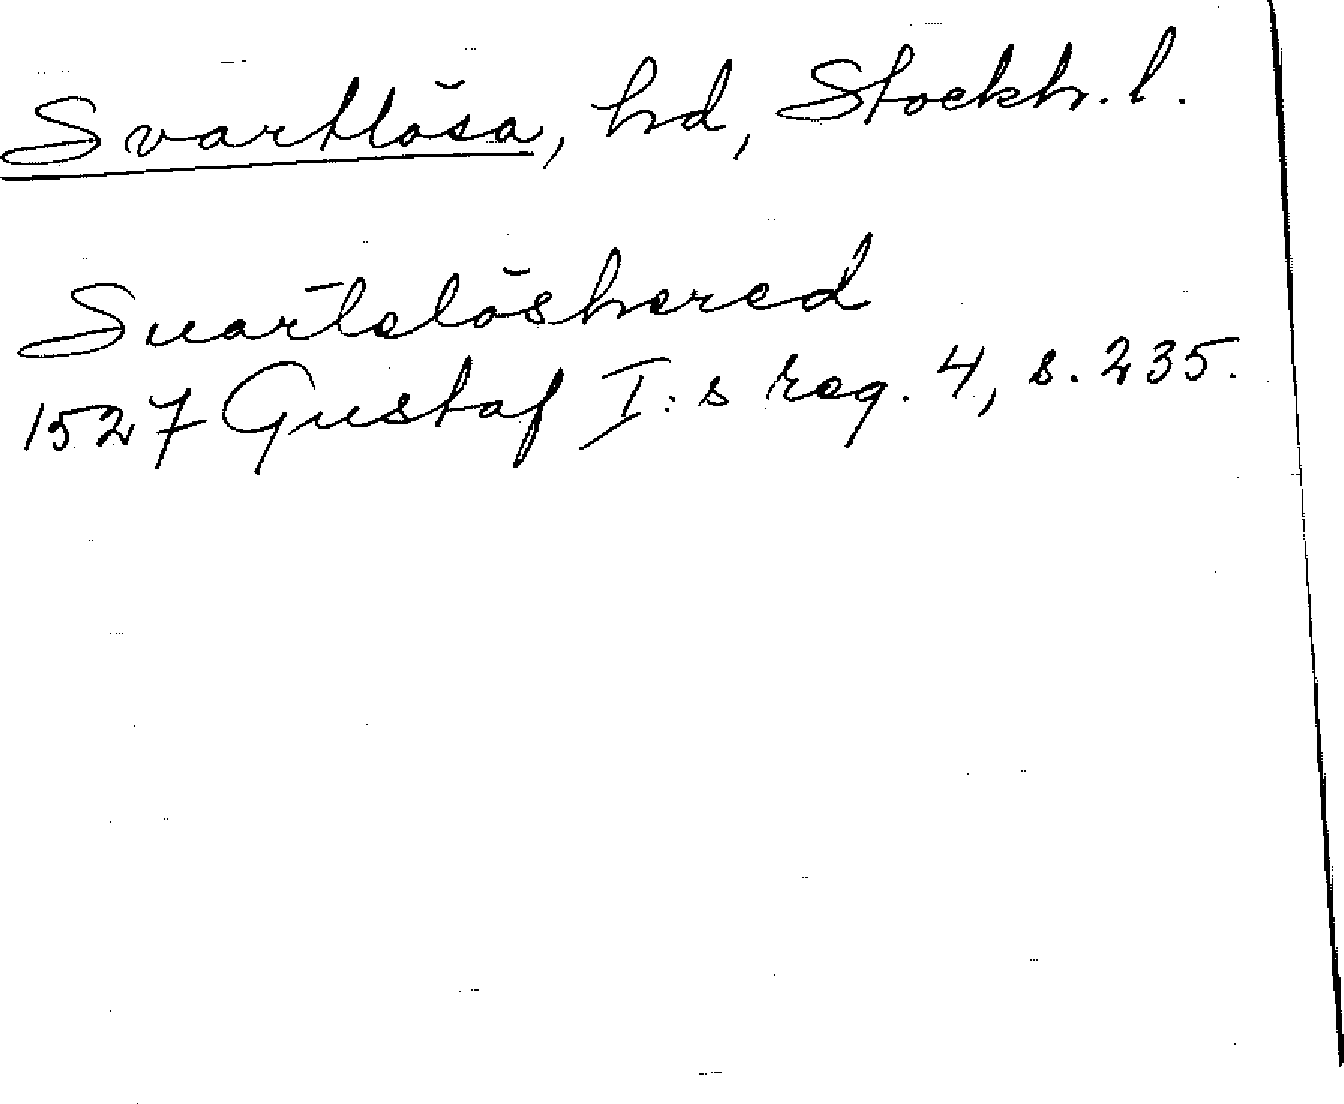 Svartlösa, hd, Stockh. l.
Suartelöshered
1527 Gustaf I:s reg. 4, s. 235.